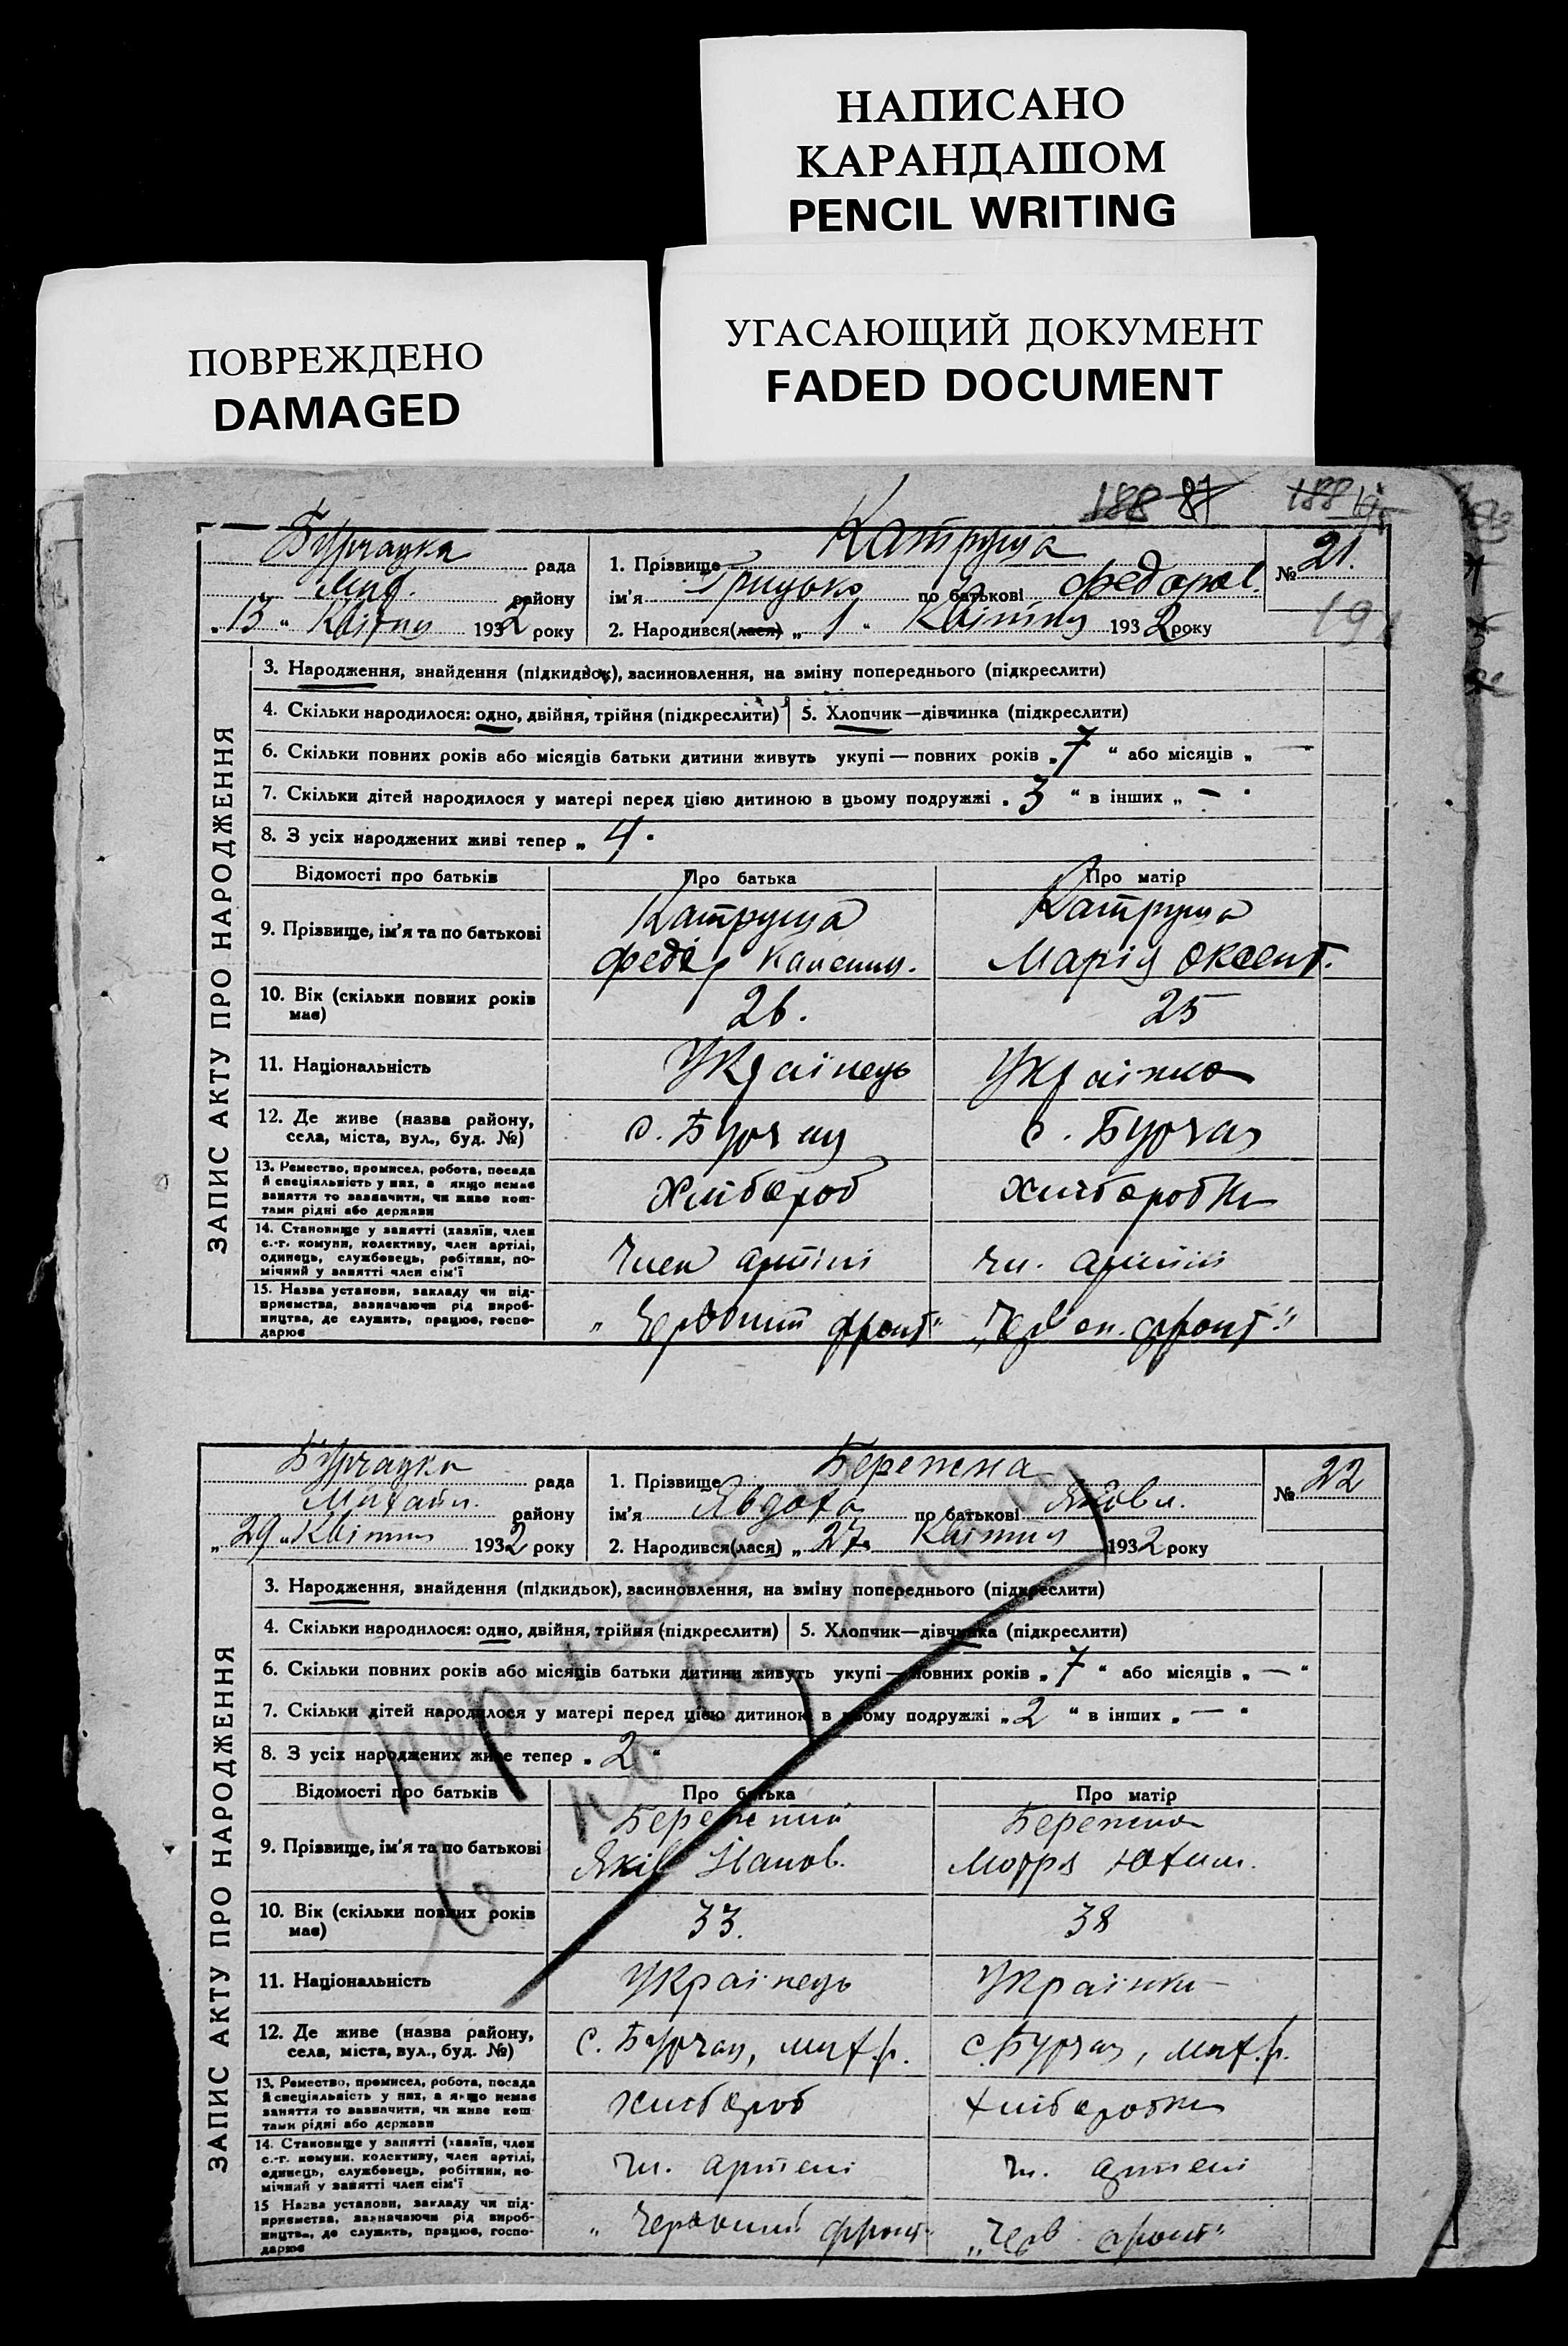 НАПИСАНО
КАРАНДАШОМ
PENCIL WRITING
ПОВРЕЖДЕНО
DAMAGED
УГАСАЮЩИЙ ДОКУМЕНТ
FADED DOCUMENT
188 87 188
ЗАПИС АКТУ ПРО НАРОДЖЕННЯ
Бурчацка рада
Мих. району
„13“ Квітня 1932 року
1. Прізвище Катруша
ім'я Грицько по батькові Федоров.
2. Народився(лася) „1“ Квітня 1932 року
№ 21.
3. Народження, знайдення (підкидьок), засиновлення, на зміну попереднього (підкреслити)
4. Скільки народилося: одно, двійня, трійня (підкреслити) 5. Хлопчик—дівчинка (підкреслити)
6. Скільки повних років або місяців батьки дитини живуть укупі — повних років „7“ або місяців „—“
7. Скільки дітей народилося у матері перед цією дитиною в цьому подружжі „3“ в інших „—“
8. З усіх народжених живі тепер „4“
Відомості про батьків Про батька Про матір
9. Прізвище, ім'я та по батькові Катруша Катруша
Федір Марія Оксент.
10. Вік (скільки повних років 26. 25
має)
11. Національність Українець Українка
12. Де живе (назва району, с. Бурчак с. Бурчак
села, міста, вул., буд. №)
13. Ремество, промисел, робота, посада Хлібороб Хліборобка
й спеціяльність у них, а якщо немає
заняття то зазначити, чи живе кош-
тами рідні або держави
14. Становище у занятті (хазяїн, член Член артілі чл. артілі
с.-г. комуни, колективу, член артілі,
одинець, службовець, робітник, по-
мічний у занятті член сім'ї
15. Назва установи, закладу чи під- „Червоний фронт“ „Червон. фронт“
приємства, зазначаючи рід вироб-
ництва, де служить, працює, госпо-
дарює
ЗАПИС АКТУ ПРО НАРОДЖЕННЯ
Бурчацка рада
Михайл. району
„29“ Квітня 1932 року
1. Прізвище Бережна
ім'я Явдоха по батькові Яковл.
2. Народився(лася) „27“ Квітня 1932 року
№ 22
3. Народження, знайдення (підкидьок), засиновлення, на зміну попереднього (підкреслити)
4. Скільки народилося: одно, двійня, трійня (підкреслити) 5. Хлопчик—дівчинка (підкреслити)
6. Скільки повних років або місяців батьки дитини живуть укупі — повних років „7“ або місяців „—“
7. Скільки дітей народилося у матері перед цією дитиною в цьому подружжі „2“ в інших „—“
8. З усіх народжених живе тепер „2“
Відомості про батьків Про батька Про матір
9. Прізвище, ім'я та по батькові Бережний Бережна
Яків Іванов. Мотря Юхим.
10. Вік (скільки повних років 33. 38
має)
11. Національність Українець Українка
12. Де живе (назва району, с. Бурчак, Мих.р. с. Бурчак, Мих.р.
села, міста, вул., буд. №)
13. Ремество, промисел, робота, посада хлібороб хліборобка
й спеціяльність у них, а якщо немає
заняття то зазначити, чи живе кош
тами рідні або держави
14. Становище у занятті (хазяїн, член чл. артелі чл. артелі
с.-г. комуни, колективу, член артілі,
одинець, службовець, робітник, по-
мічний у занятті член сім'ї
15 Назва установи, закладу чи під- „Червоний фронт“ „Черв фронт“
приємства, зазначаючи рід вироб-
ництва, де служить, працює, госпо-
дарює